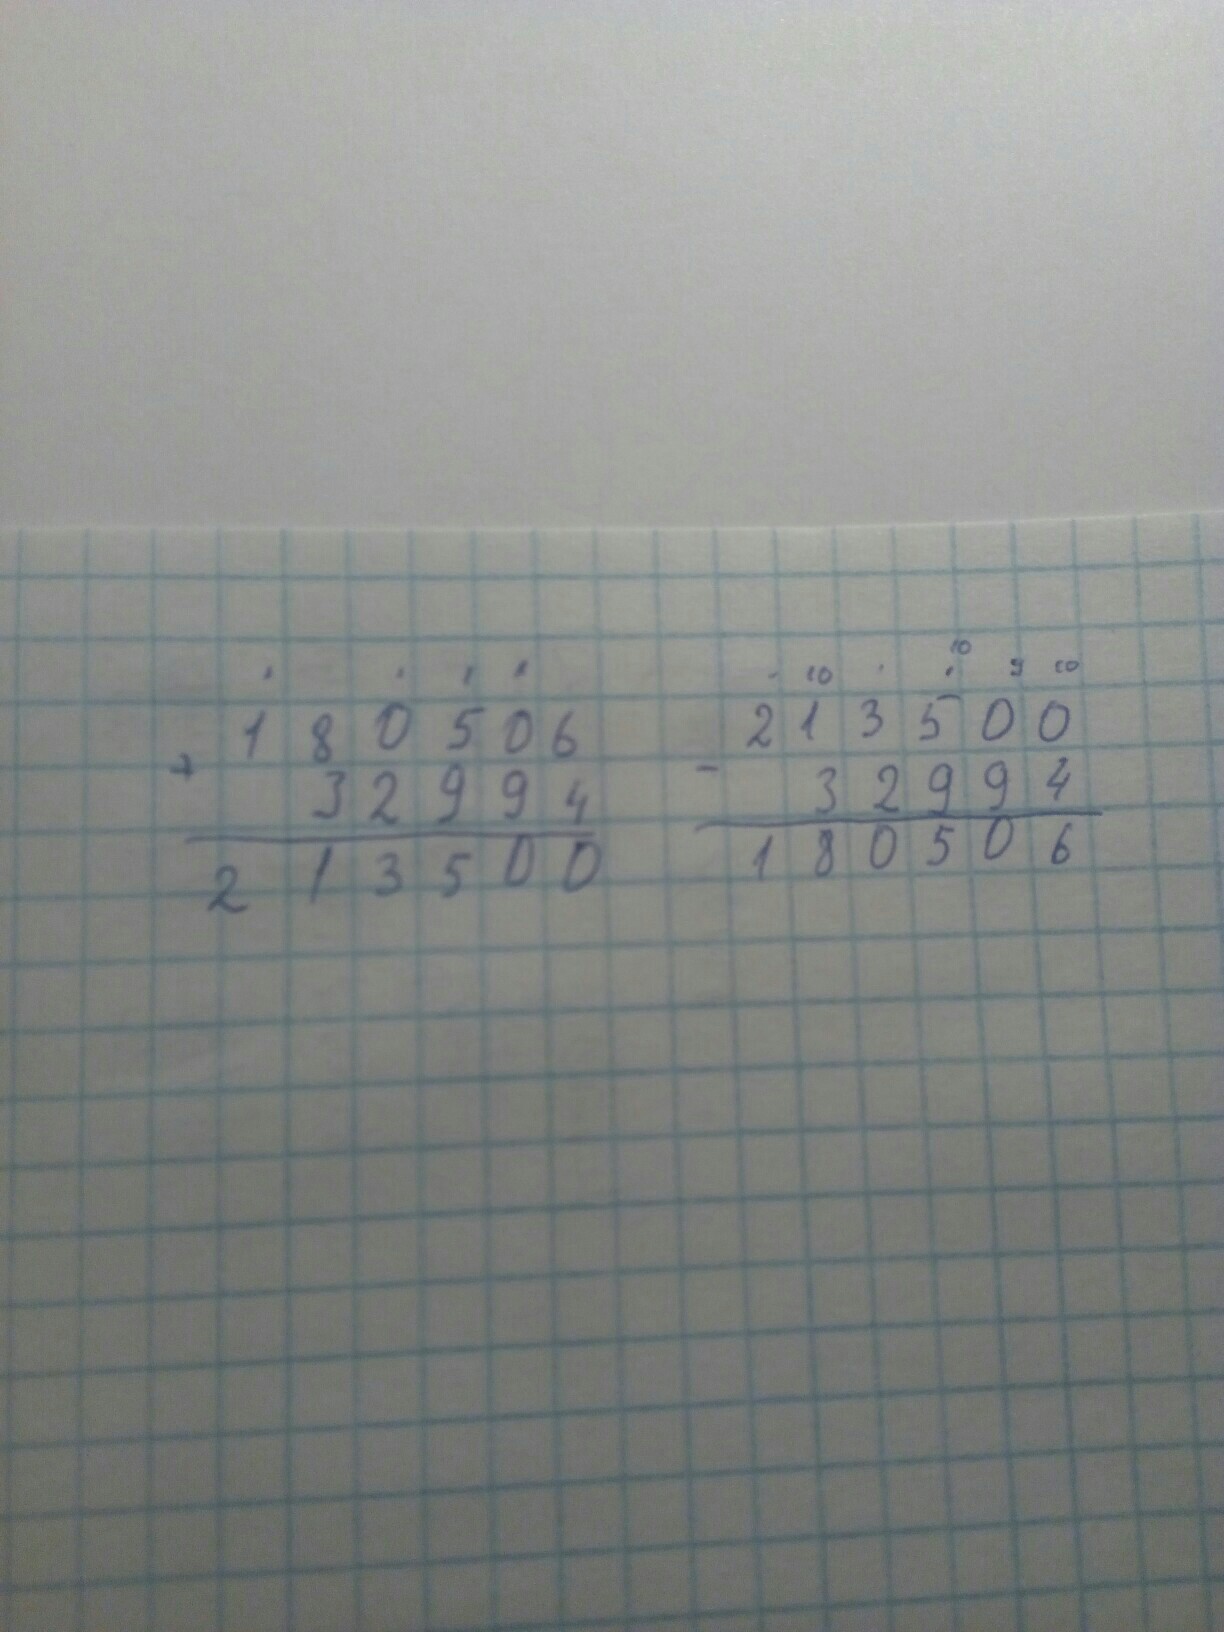 10
· · · · · 10 · · 9 10
180506 213500
+ -
32994 32994
213500 180506